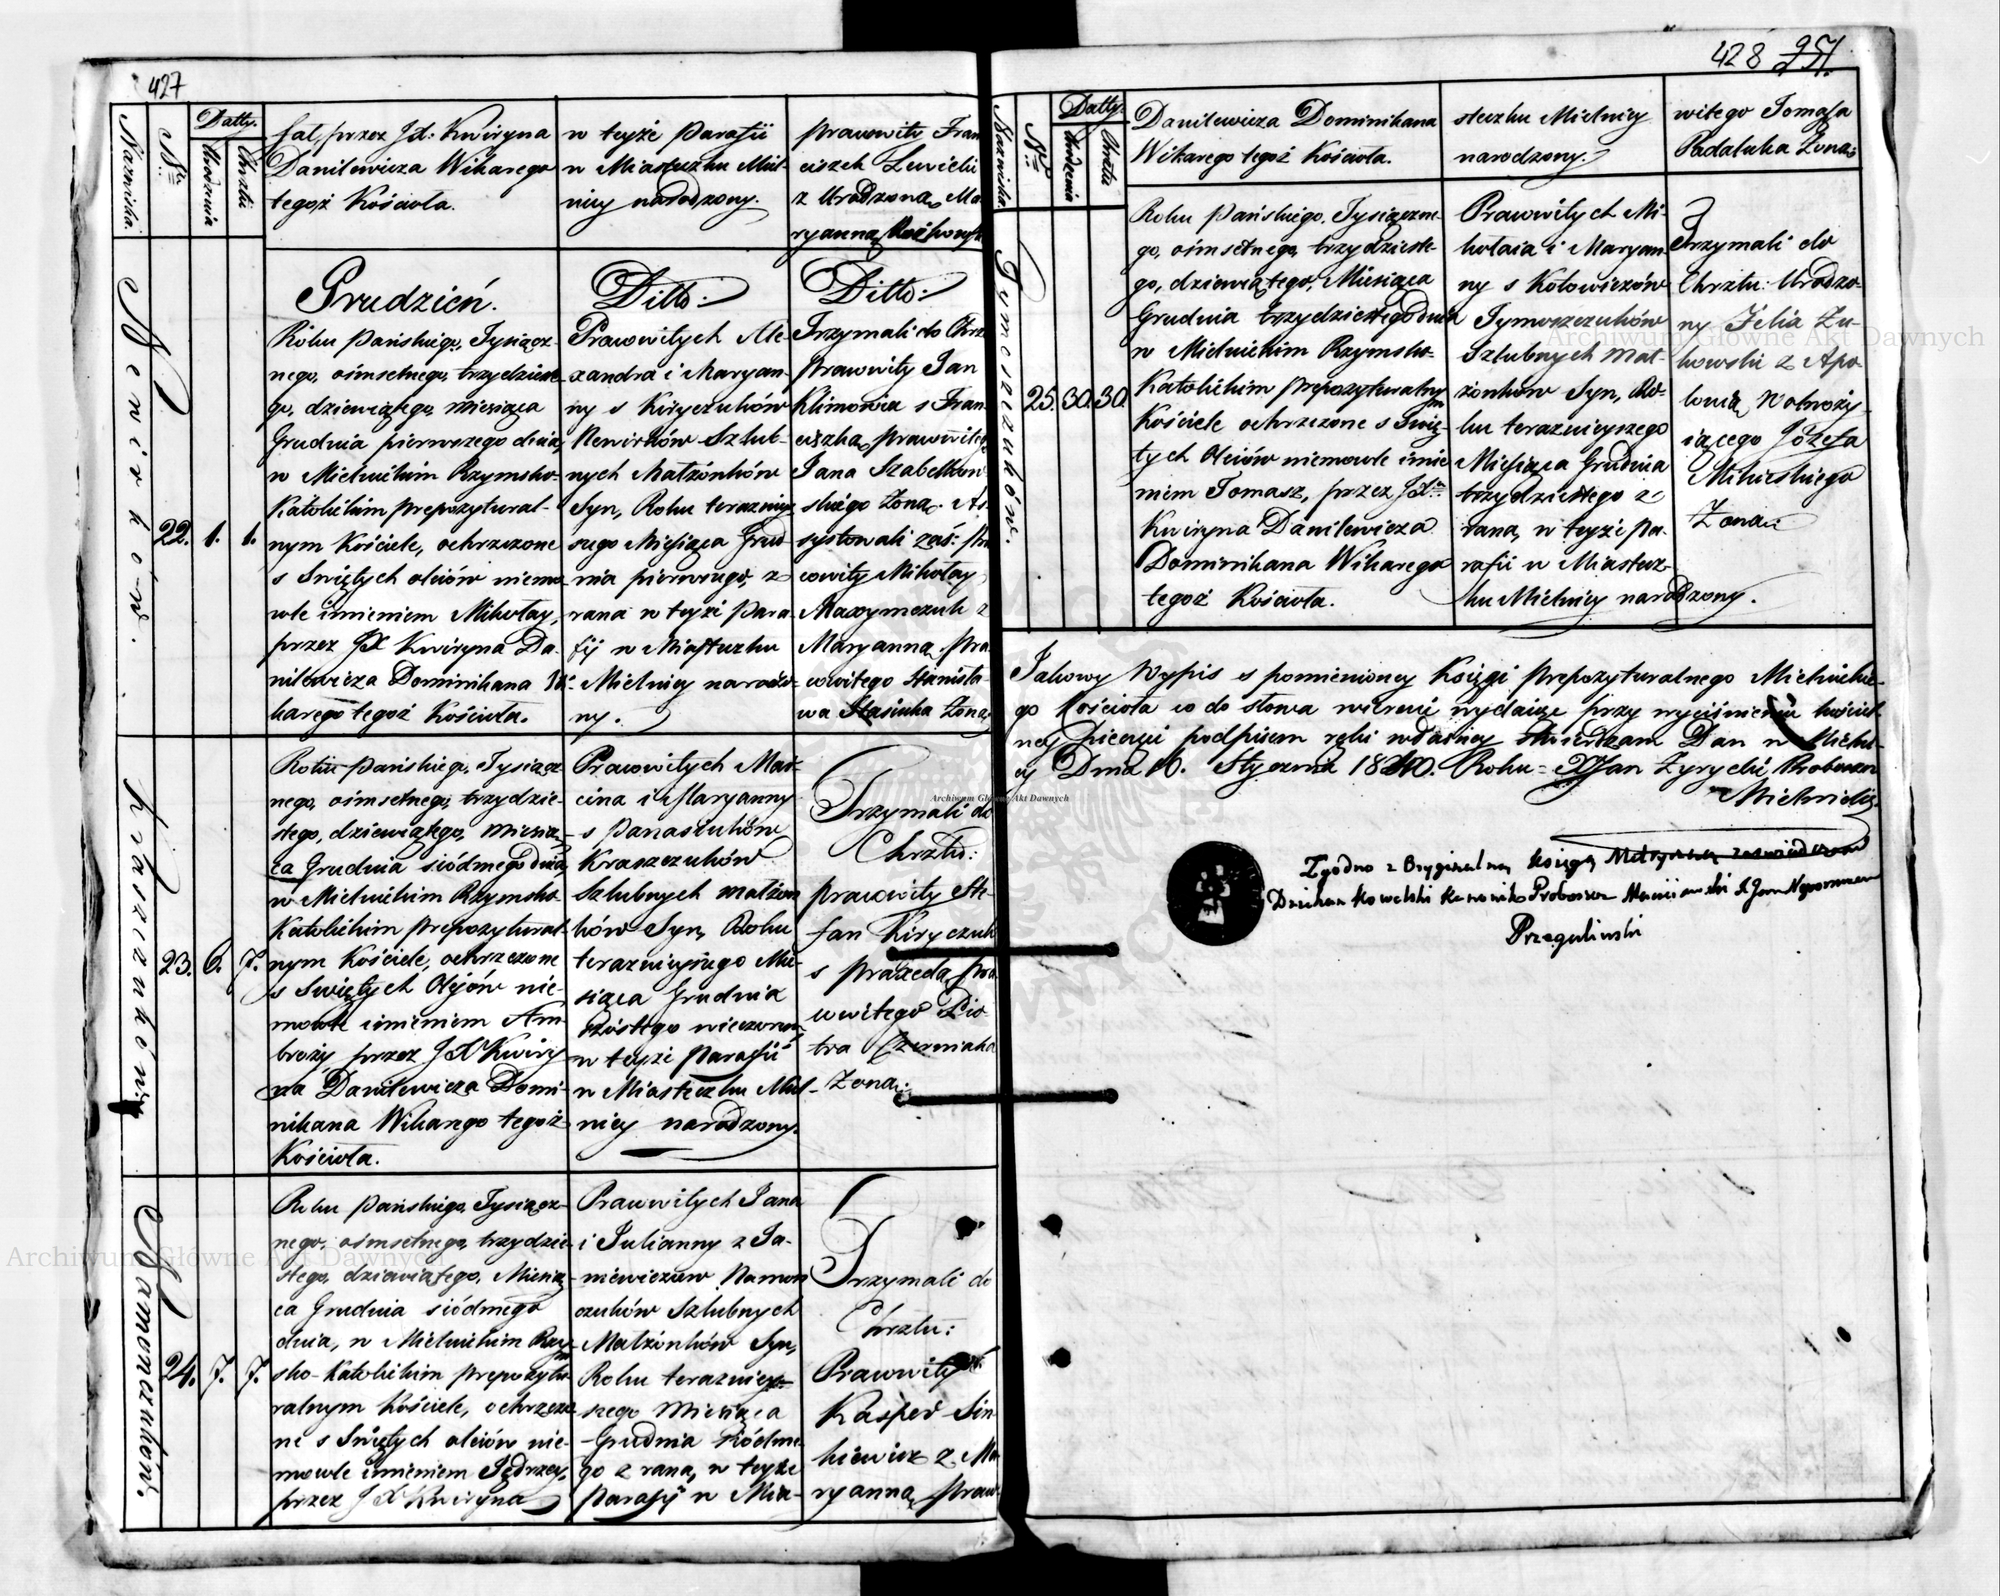 427
Nazwiska.
N=
Datty.
Urodzenia
Chrztu
fał, przez JX: Kwiryna
Danilewicza Wikarego
tegoż Kościoła.
w teyże Parafii
w Miasteczku Miel-
nicy narodzony.
prawowity Fran
ciszek Lewicki
z Urodzoną Ma
ryanną
Newirków.
22.
1.
1.
Grudzień.
Roku Pańskiego, Tysiącz-
nego, ośmsetnego, trzydzieste-
go, dziewiątego, miesiąca
Grudnia pierwszego dnia,
w Mielnickim Rzymsko-
Katolickim prepozytural-
nym Kościele, ochrzczone
s Swiętych oleiów niemo-
wle imieniem Mikołay,
przez JX Kwiryna Da-
nilewicza Dominikana Wi-
karego tegoż Kościoła.
Ditto:
Prawowitych Ale-
xandra i Maryan-
ny s Kiryczuków
Newirków Szlub-
nych Małżonków
Syn, Roku terazniey-
szego Miesiąca Grud-
nia pierwszego, z
rana w teyże Para-
fij w Miasteczku
Mielnicy narodzo-
ny.
Ditto:
Trzymali do Chrz
prawowity Jan
Klimowicz s Fran
ciszką, prawowitego
Jana Szabelkow
skiego Żoną. As
systowali zaś: Pra
wowity Mikołay
Maxymczuk z
Maryanną, Pra
wowitego Stanisła-
wa Stasiuka Żoną
Kraszczuków
23.
6.
7.
Roku Pańskiego, Tysiącz
nego, ośmsetnego, trzydzie-
stego, dziewiątego, miesią-
ca Grudnia siódmego dnia,
w Mielnickim Rzymsko
Katolickim prepozytural-
nym Kościele, ochrzczone
s Swiętych Olejów nie-
mowle imieniem Am-
broży, przez JX Kwiry-
na Danilewicza Domi-
nikana Wikarego tegoż
Kościoła.
Prawowitych Mar-
cina i Maryanny
s Panasiuków
Kraszczuków
Szlubnych małżon
ków Syn, Roku
teraznieyszego Mie-
siąca Grudnia
szóstego wieczorem
w teyże Parafij
w Miasteczku Miel-
nicy narodzony.
Trzymali do
Chrztu:
prawowity Ste-
fan Kiryczuk
s Praxedą, pra
wowitego Pio-
tra Czerniaka
Żoną.
Namonczuków.
24.
7.
7.
Roku Pańskiego, Tysiącz-
nego, ośmsetnego, trzydzie-
stego, dziewiątego, Miesią-
ca Grudnia siódmego
dnia, w Mielnickim Rzym
sko-Katolickim prepozytu-
ralnym Kościele, ochrzczo-
ne s Swiętych oleiów nie-
mowle imieniem Jędrzey,
przez JX Kwiryna
Prawowitych Jana
i Julianny z Ja-
niewiczów Namon
czuków Szlubnych
Małżonków Syn,
Roku terazniey-
szego Miesiąca
Grudnia siódme-
go z rana, w teyże
Parafij w Mia-
Trzymali do
Chrztu:
Prawowity
Kasper Sin
kiewicz z Ma
ryanną, Praw-
428 251.
Nazwiska.
N=
Datty.
Urodzenia
Chrztu
Danilewicza Dominikana
Wikarego tegoż Kościoła.
steczku Mielnicy
narodzony.
witego Tomasza
Padaluka Żoną.
Tymoszczuków.
25.
30.
30.
Roku Pańskiego, Tysiączne-
go, ośmsetnego, trzydzieste-
go, dziewiątego, Miesiąca
Grudnia trzydziestego dnia
w Mielnickim Rzymsko-
Katolickim prepozyturalnym
Kościele ochrzczone s Swię-
tych Oleiów niemowle imie
niem Tomasz, przez JX
Kwiryna Danilewicza
Dominikana Wikarego
tegoż Kościoła.
Prawowitych Mi-
kołaia i Maryan-
ny s Kotowiczów
Tymoszczuków
Szlubnych Mał-
żonków Syn, Ro-
ku teraznieyszego
Miesiąca Grudnia
trzydziestego z
rana, w teyże pa-
rafii w Miastecz-
ku Mielnicy narodzony.
Trzymali do
Chrztu: Urodzo-
ny Felix Żu-
kowski z Apo-
lonią, Wolnoży-
iącego Józefa
Milieskiego
Żoną.
Jakowy Wypis s pomienioney Księgi Prepozyturalnego Mielnickie-
go Kościoła co do słowa wiernie wydaiąc przy wyciśnieniu kościel
ney pieczęci podpisem ręki własney stwierdzam Dan w Mielni-
cy Dnia 10. Stycznia 1840. Roku = XJan Żyrycki Proboszcz
Mielnicki.
Zgodno z Oryginalną Księgą Metryczną zaświadczam
Dziekan Kowelski Kanonik Proboszcz
Przegaliński
Archiwum Główne Akt Dawnych
Archiwum Główne Akt Dawnych
Archiwum Główne Akt Dawnych